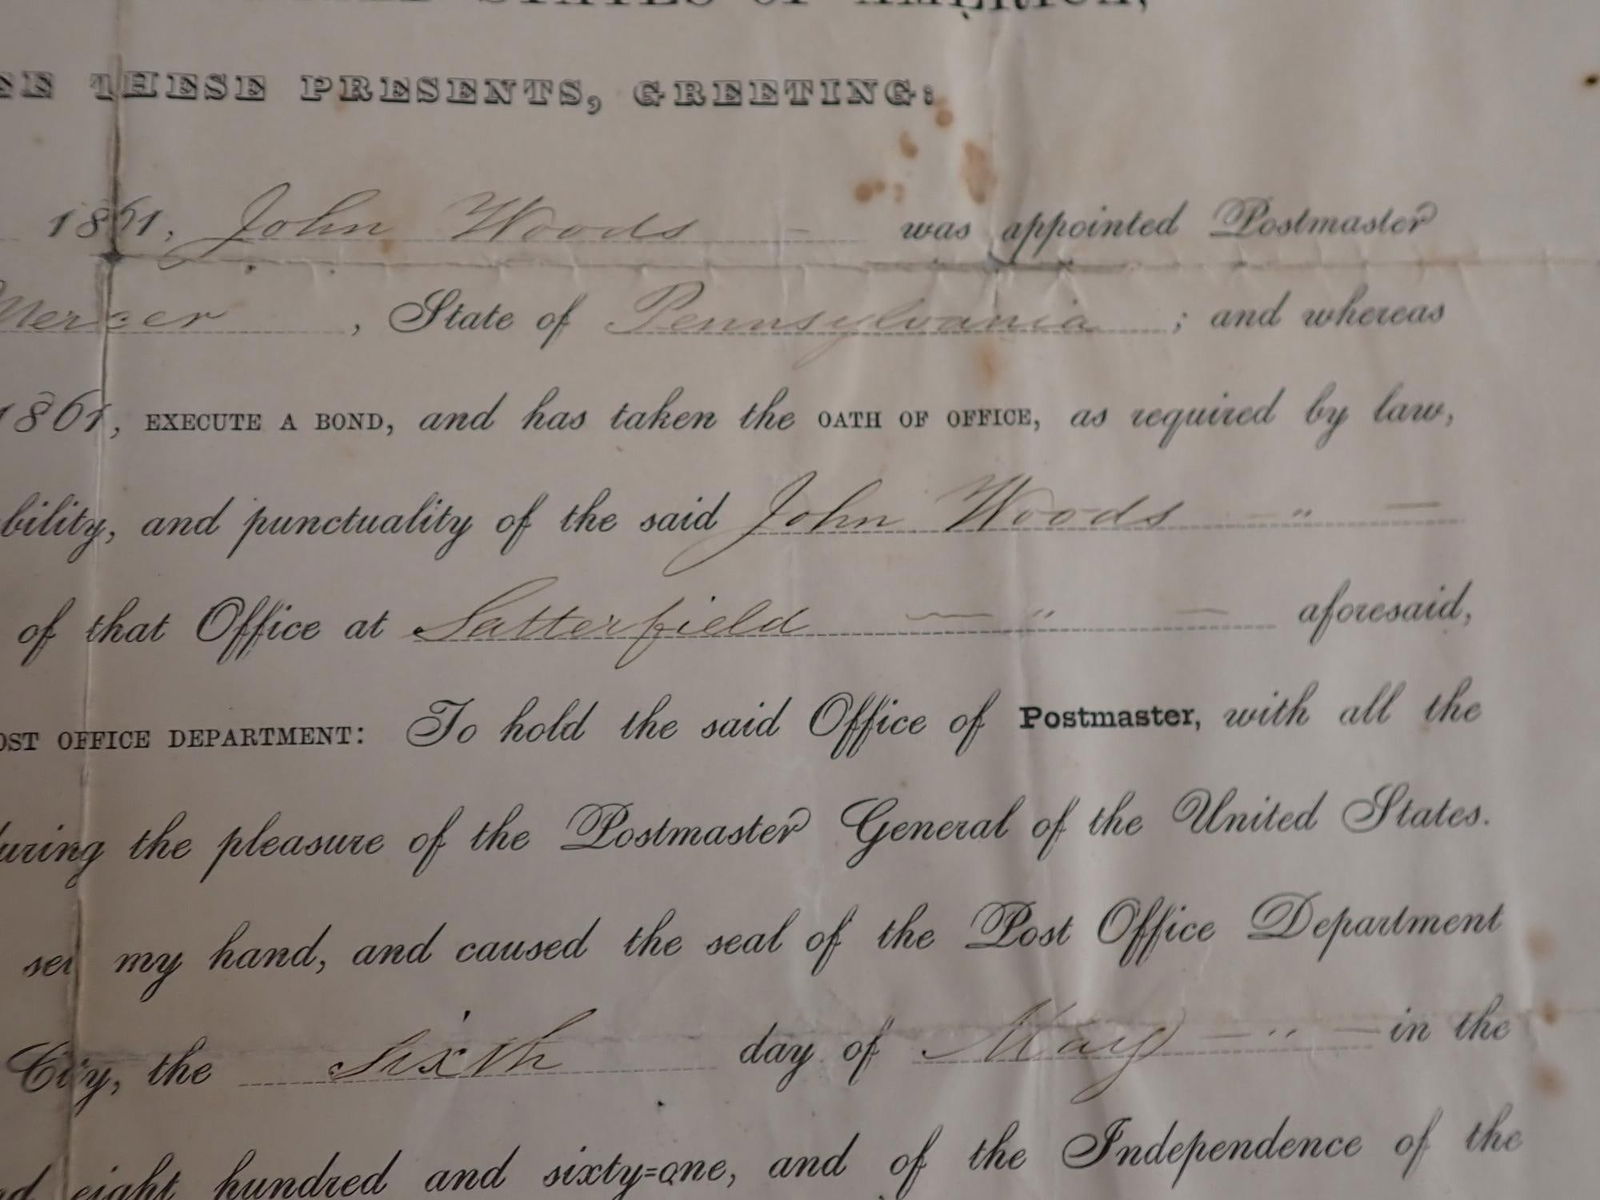 STATES OF AMERICA,
THESE PRESENTS, GREETING:
1861, John Woods was appointed Postmaster
Mercer, State of Pennsylvania; and whereas
1861, EXECUTE A BOND, and has taken the OATH OF OFFICE, as required by law,
bility, and punctuality of the said John Woods — " —
of that Office at Satterfield — " — aforesaid,
OST OFFICE DEPARTMENT: To hold the said Office of Postmaster, with all the
during the pleasure of the Postmaster General of the United States.
set my hand, and caused the seal of the Post Office Department
City, the sixth day of May — " — in the
eight hundred and sixty=one, and of the Independence of the